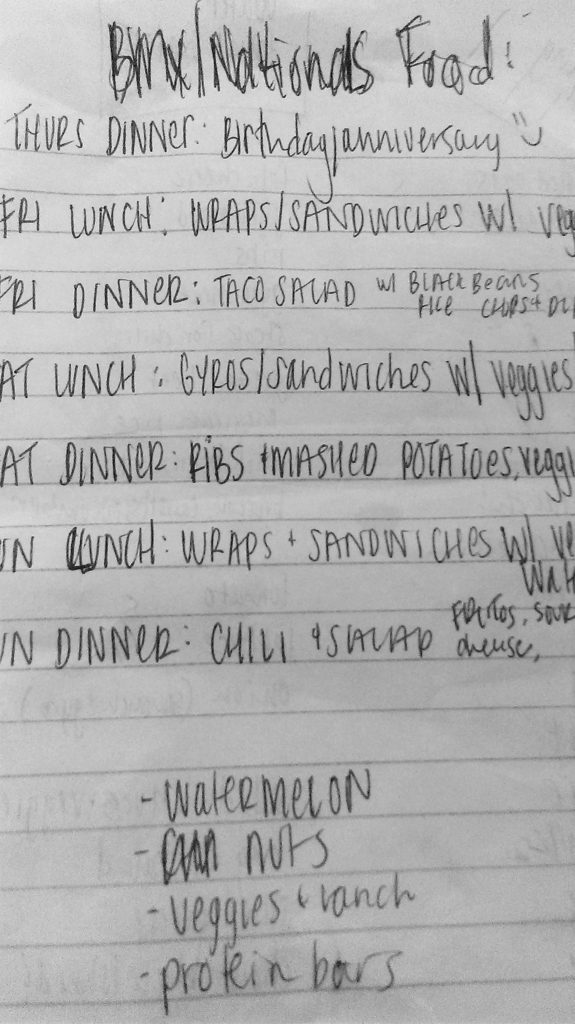 BMX/Nationals Food:
THURS DINNER: Birthday/anniversary
FRI LUNCH: WRAPS/SANDWICHES W/ veg
FRI DINNER: TACO SALAD w/ BLACK Beans
RICE CHIPS + DI
AT LUNCH: GYROS/Sandwiches W/ Veggies
AT DINNER: RIBS + MASHED POTATOES, veggi
UN LUNCH: WRAPS + SANDWICHES W/ ve
Wat
FRITOS, SOUR
UN DINNER: CHILI + SALAD cheese,
- WATERMELON
- nuts
- veggies + ranch
- protein bars